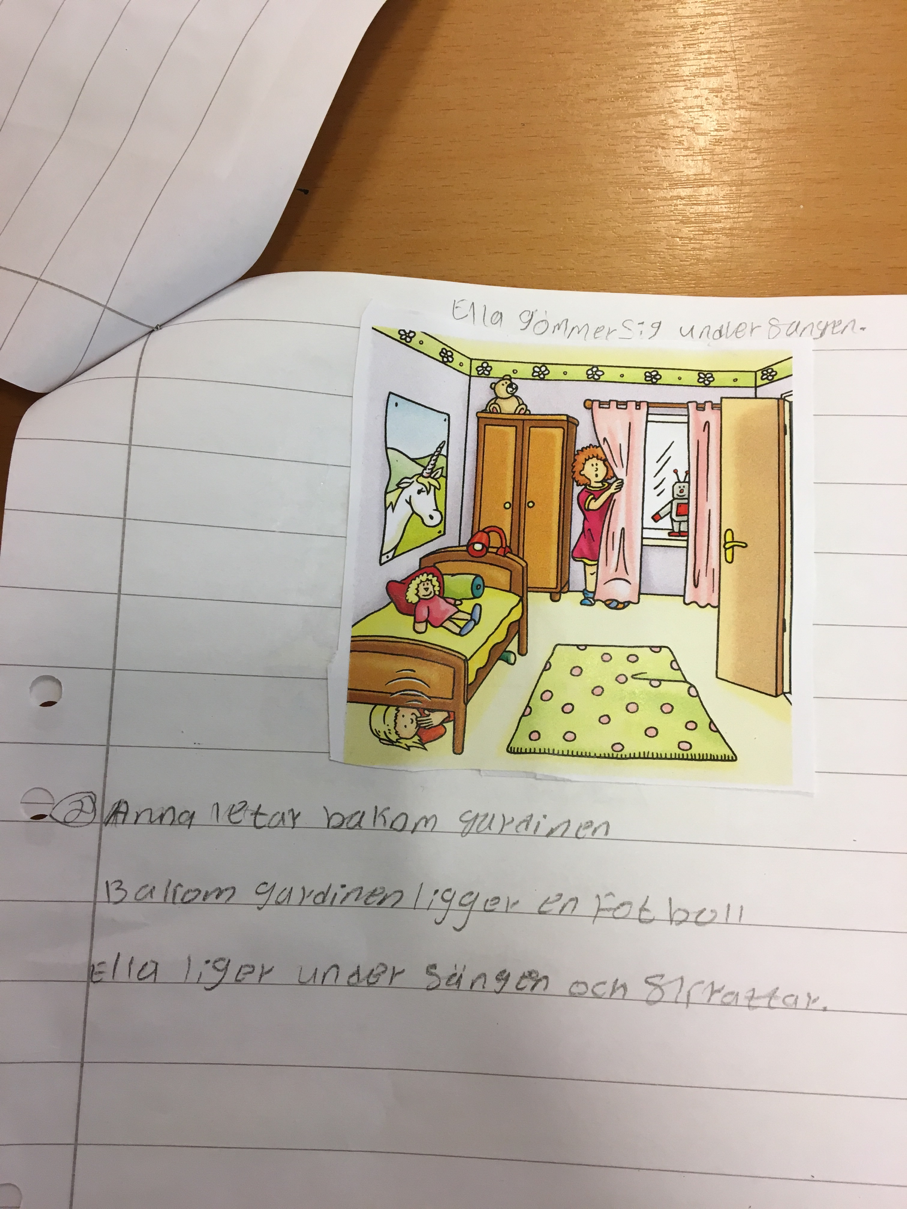 Ella gömmer sig under sängen.
2 Anna letar bakom gardinen
Bakom gardinen ligger en Fotboll
Ella liger under sängen och skrattar.